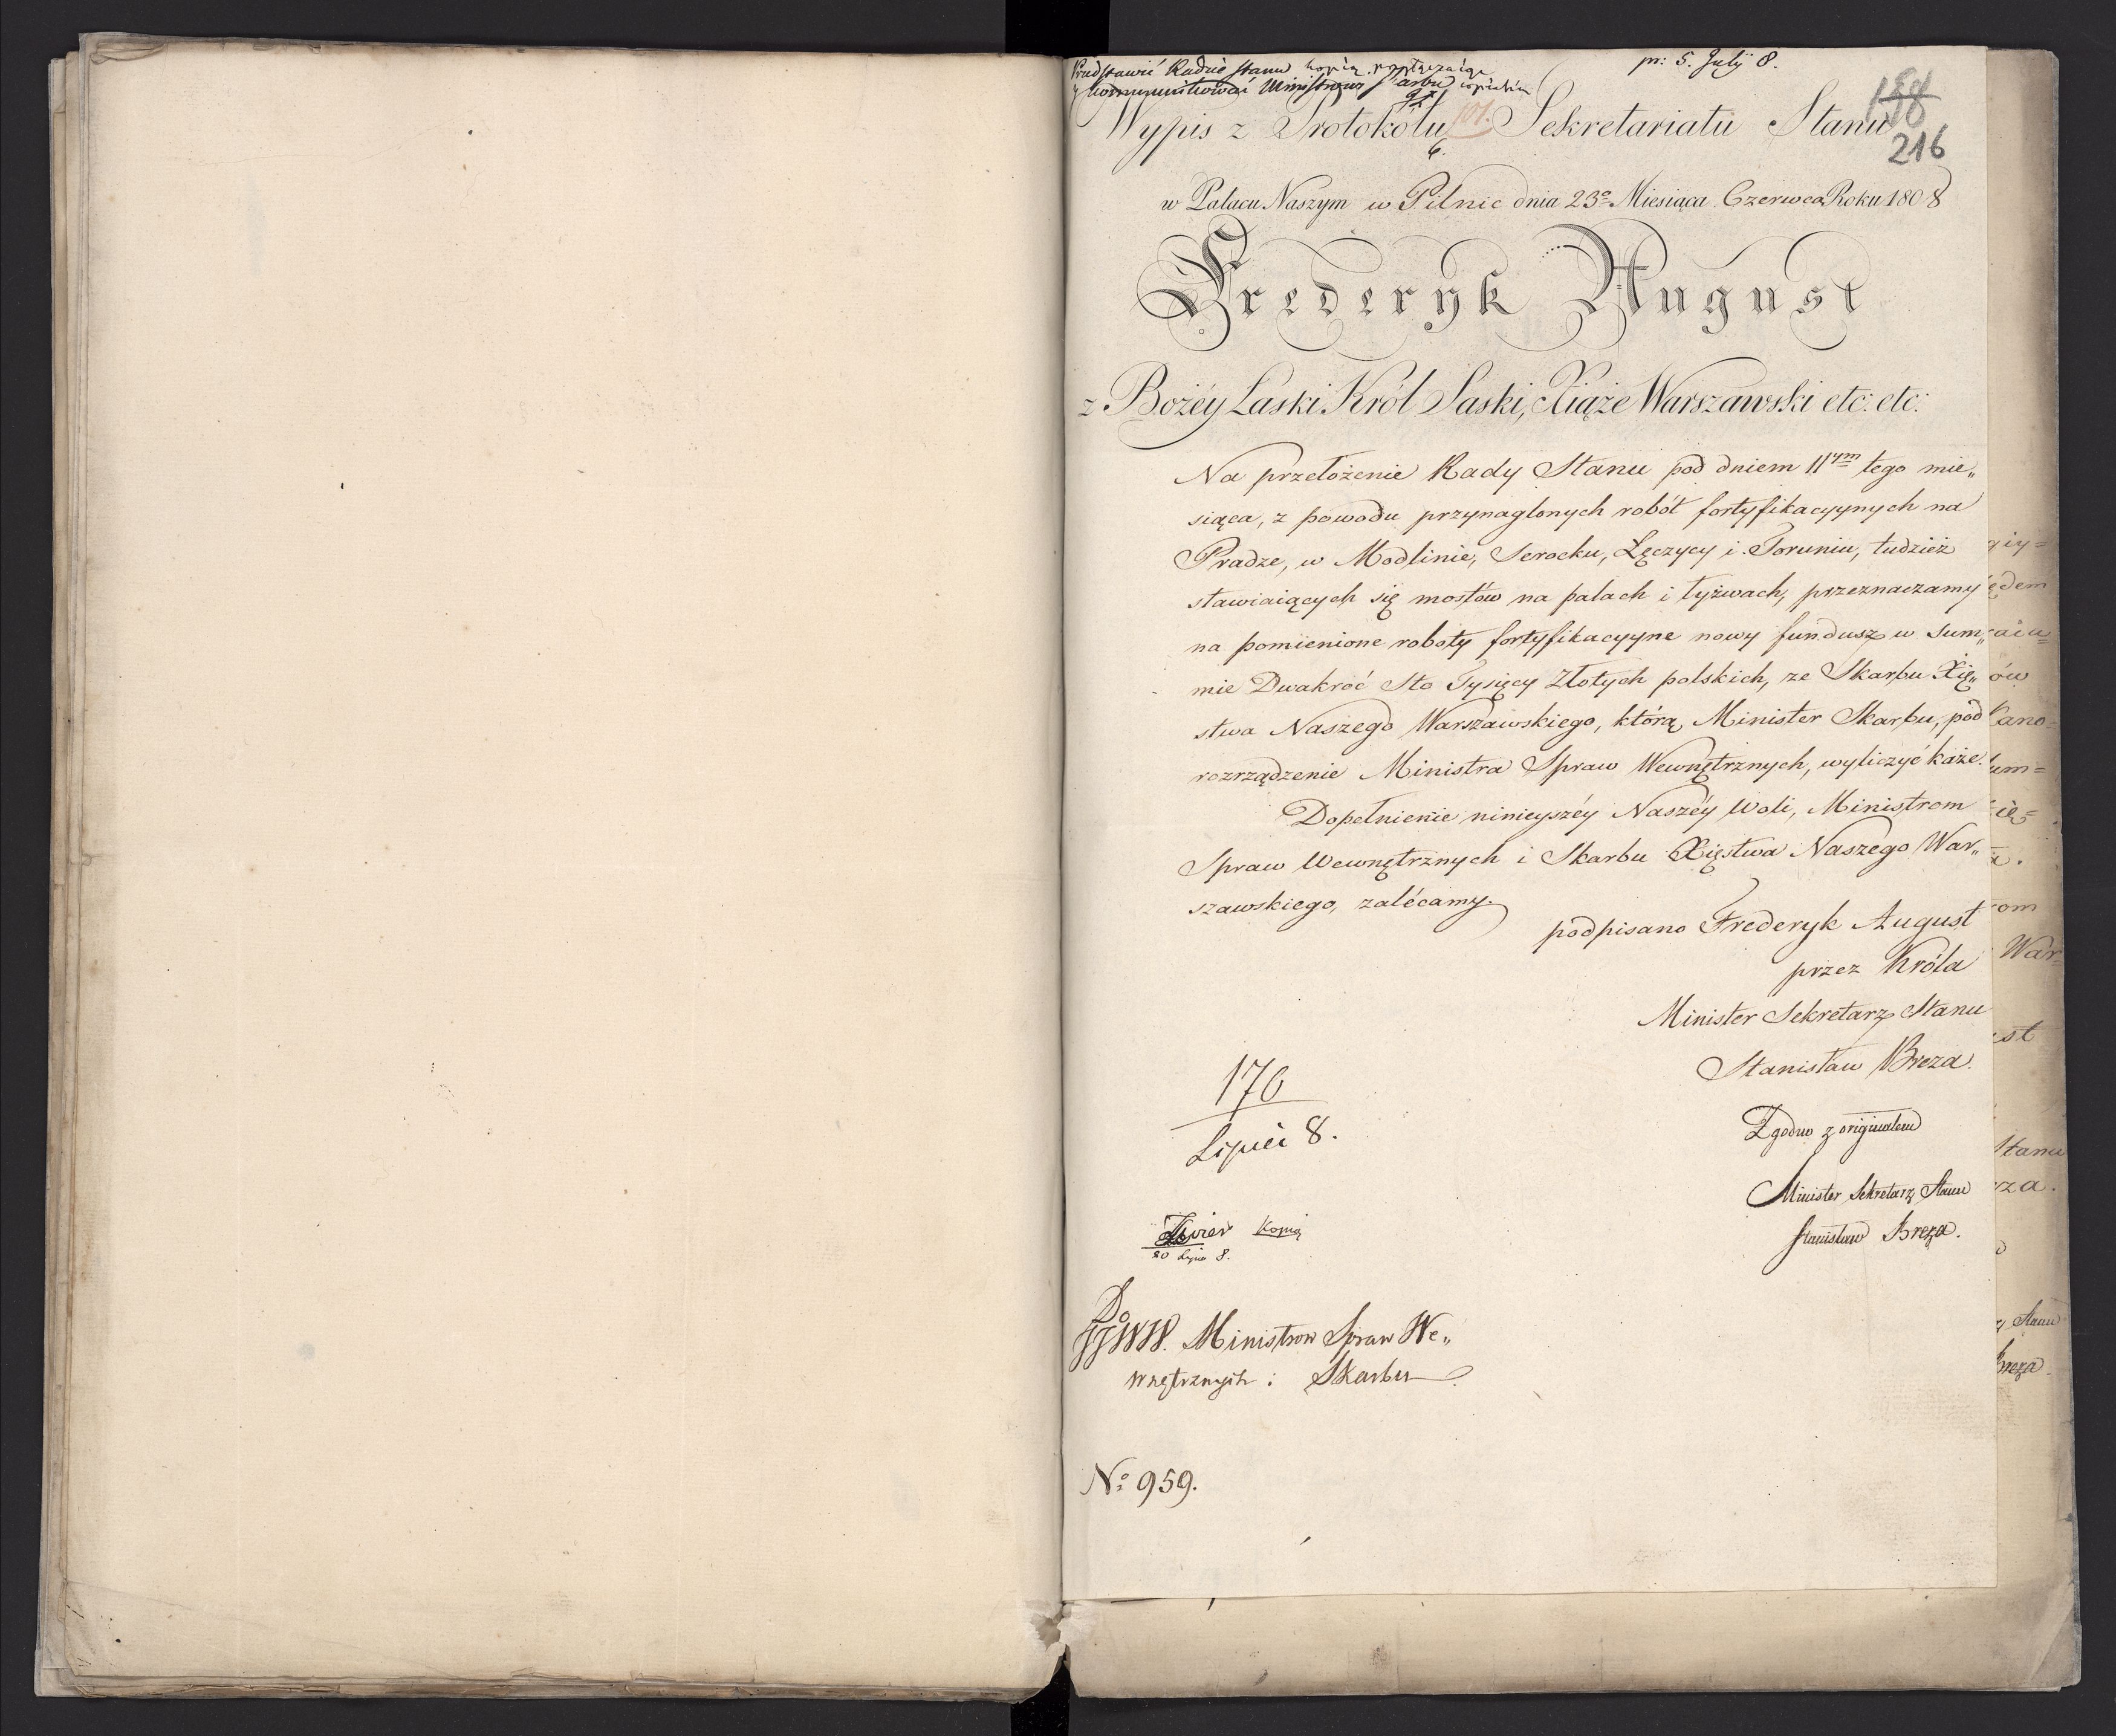 pr: 5. July 8.
Przedstawić Radzie stanu kopią
kommunikować Ministrowi Skarbu
Wypis z Protokółu 101. Sekretariatu Stanu
216
6.
w Pałacu Naszym w Pilnic dnia 23º Miesiąca Czerwca Roku 1808
Frederyk August
z Bożéy Łaski Król Saski, Xiąże Warszawski etc: etc:
Na przełożenie Rady Stanu pod dniem 11ym tego mie„
siąca, z powodu przynaglonych robót fortyfikacyynych na
Pradze, w Modlinie, Serocku, Łęczycy i Toruniu, tudzież
stawiaiących się mostów na palach i łyżwach, przeznaczamy
na pomienione roboty fortyfikacyyne nowy fundusz w Sum„
mie Dwakroć Sto Tysięcy Złotych polskich, ze Skarbu Xię„
stwa Naszego Warszawskiego, którą Minister Skarbu, pod
rozrządzenie Ministra Spraw Wewnętrznych, wyliczyć każe.
Dopełnienie ninieyszéy Naszéy Woli, Ministrom
Spraw Wewnętrznych i Skarbu Xięstwa Naszego War„
szawskiego, zalécamy.
podpisano Frederyk August
przez Króla
Minister Sekretarz Stanu
Stanisław Breza.
170
Lipiec 8.
Zgodno z originałem
Minister Sekretarz Stanu
Stanisław Breza.
Kopią
20 Lipca 8.
Do
JJWW. Ministrow Spraw We„
wnętrznych i Skarbu
No 959.